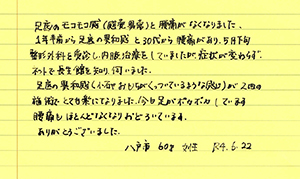 足底のモコモコ感(感覚異常)と腰痛がなくなりました。
1年半前から足底の異和感と30代から腰痛があり、5月下旬
整形外科を受診し、内服治療をしていましたが、症状が変わらず、
ネットで養生館を知り、伺いました。
足底の異和感(小石やおもちがくっついているような感じ)が2回の
施術でとても楽になりました。今も足がポカポカしています
腰痛もほとんどなくなりおどろいています。
ありがとうございました。
八戸市 60才 女性 R4.6.22